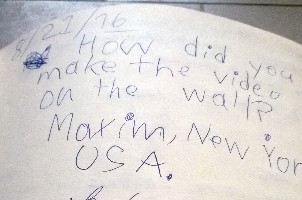 8/21/16
How did you
make the video
on the wall?
Maxim, New Yor
USA.